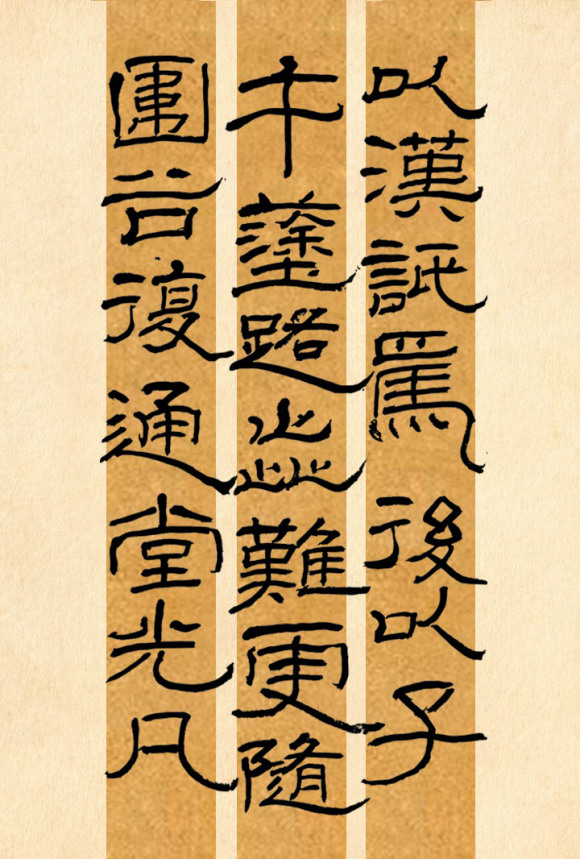 以漢詆焉後以子
午塗路歮難更隨
圍谷復通堂光凡